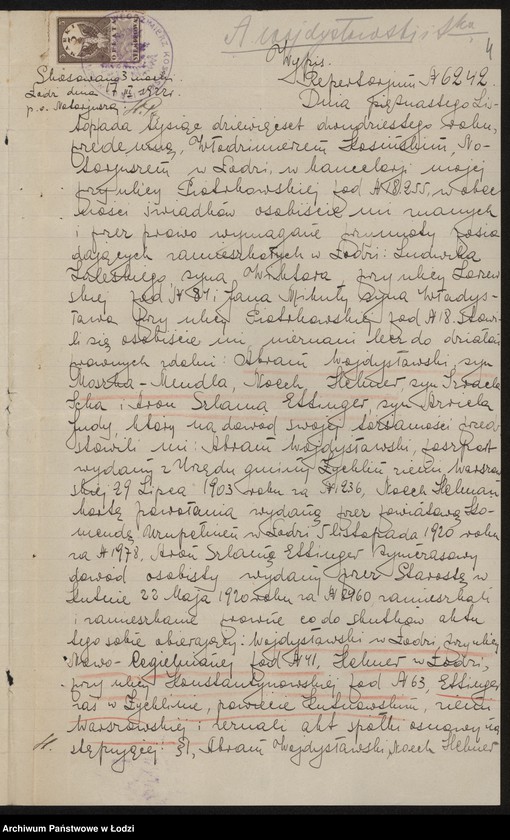 A Wojdysławski i Ska
4
Wypis.
Skasowano 3 marki
Repertorjum № 6242.
Łódź dnia 1922 r.
Dnia piętnastego Li-
p.o. Notarjusza
stopada tysiąc dziewięćset dwudziestego roku,
przede mną, Włodzimierzem Kosińskim, No-
tarjuszem w Łodzi, w kancelarji mojej
przy ulicy Piotrkowskiej pod № 255, w obec
ności świadków osobiście mi znanych
i przez prawo wymagane przymioty posia
dających zamieszkałych w Łodzi: Ludwika
Zaleskiego syna Wiktora, przy ulicy
skiej pod № 84 i Jana Mikuły syna Władys-
ława przy ulicy Piotrkowskiej pod № 18. Stawi-
li się osobiście mi nieznani lecz do działań
prawnych zdolni: Abram Wojdysławski, syn
Maska-Mendla, Noech Helmer, syn Izraela
Icka i Aron Szlama Ettinger, syn
Judy, który na dowód swojej tożsamości przed
stawili mi: Abram Wojdysławski, paszport
wydany z Urzędu gminy Żychlin ziemi Warszaw
skiej 29 Lipca 1903 roku za № 236, Noech Helman
kartę powołania wydaną przez powiatową Ko-
mendę Uzupełnień w Łodzi 5 listopada 1920 roku
za № 1978, Aron Szlama Ettinger tymczasowy
dowód osobisty wydany przez Starostę w
Kutnie 22 Maja 1920 roku za № 960, zamieszkali
i zamieszkanie prawne co do skutków aktu
tego sobie obierający: Wojdysławski w Łodzi, przy ulicy
Nowo-Cegielnianej pod № 41, Helmer w Łodzi,
przy ulicy Konstantynowskiej pod № 63, Ettinger
zaś w Żychlinie, powiecie Kutnowskim, ziemi
Warszawskiej i zeznali akt spółki osnowy na
stępującej: §1, Abram Wojdysławski, Noech Helmer
Archiwum Państwowe w Łodzi